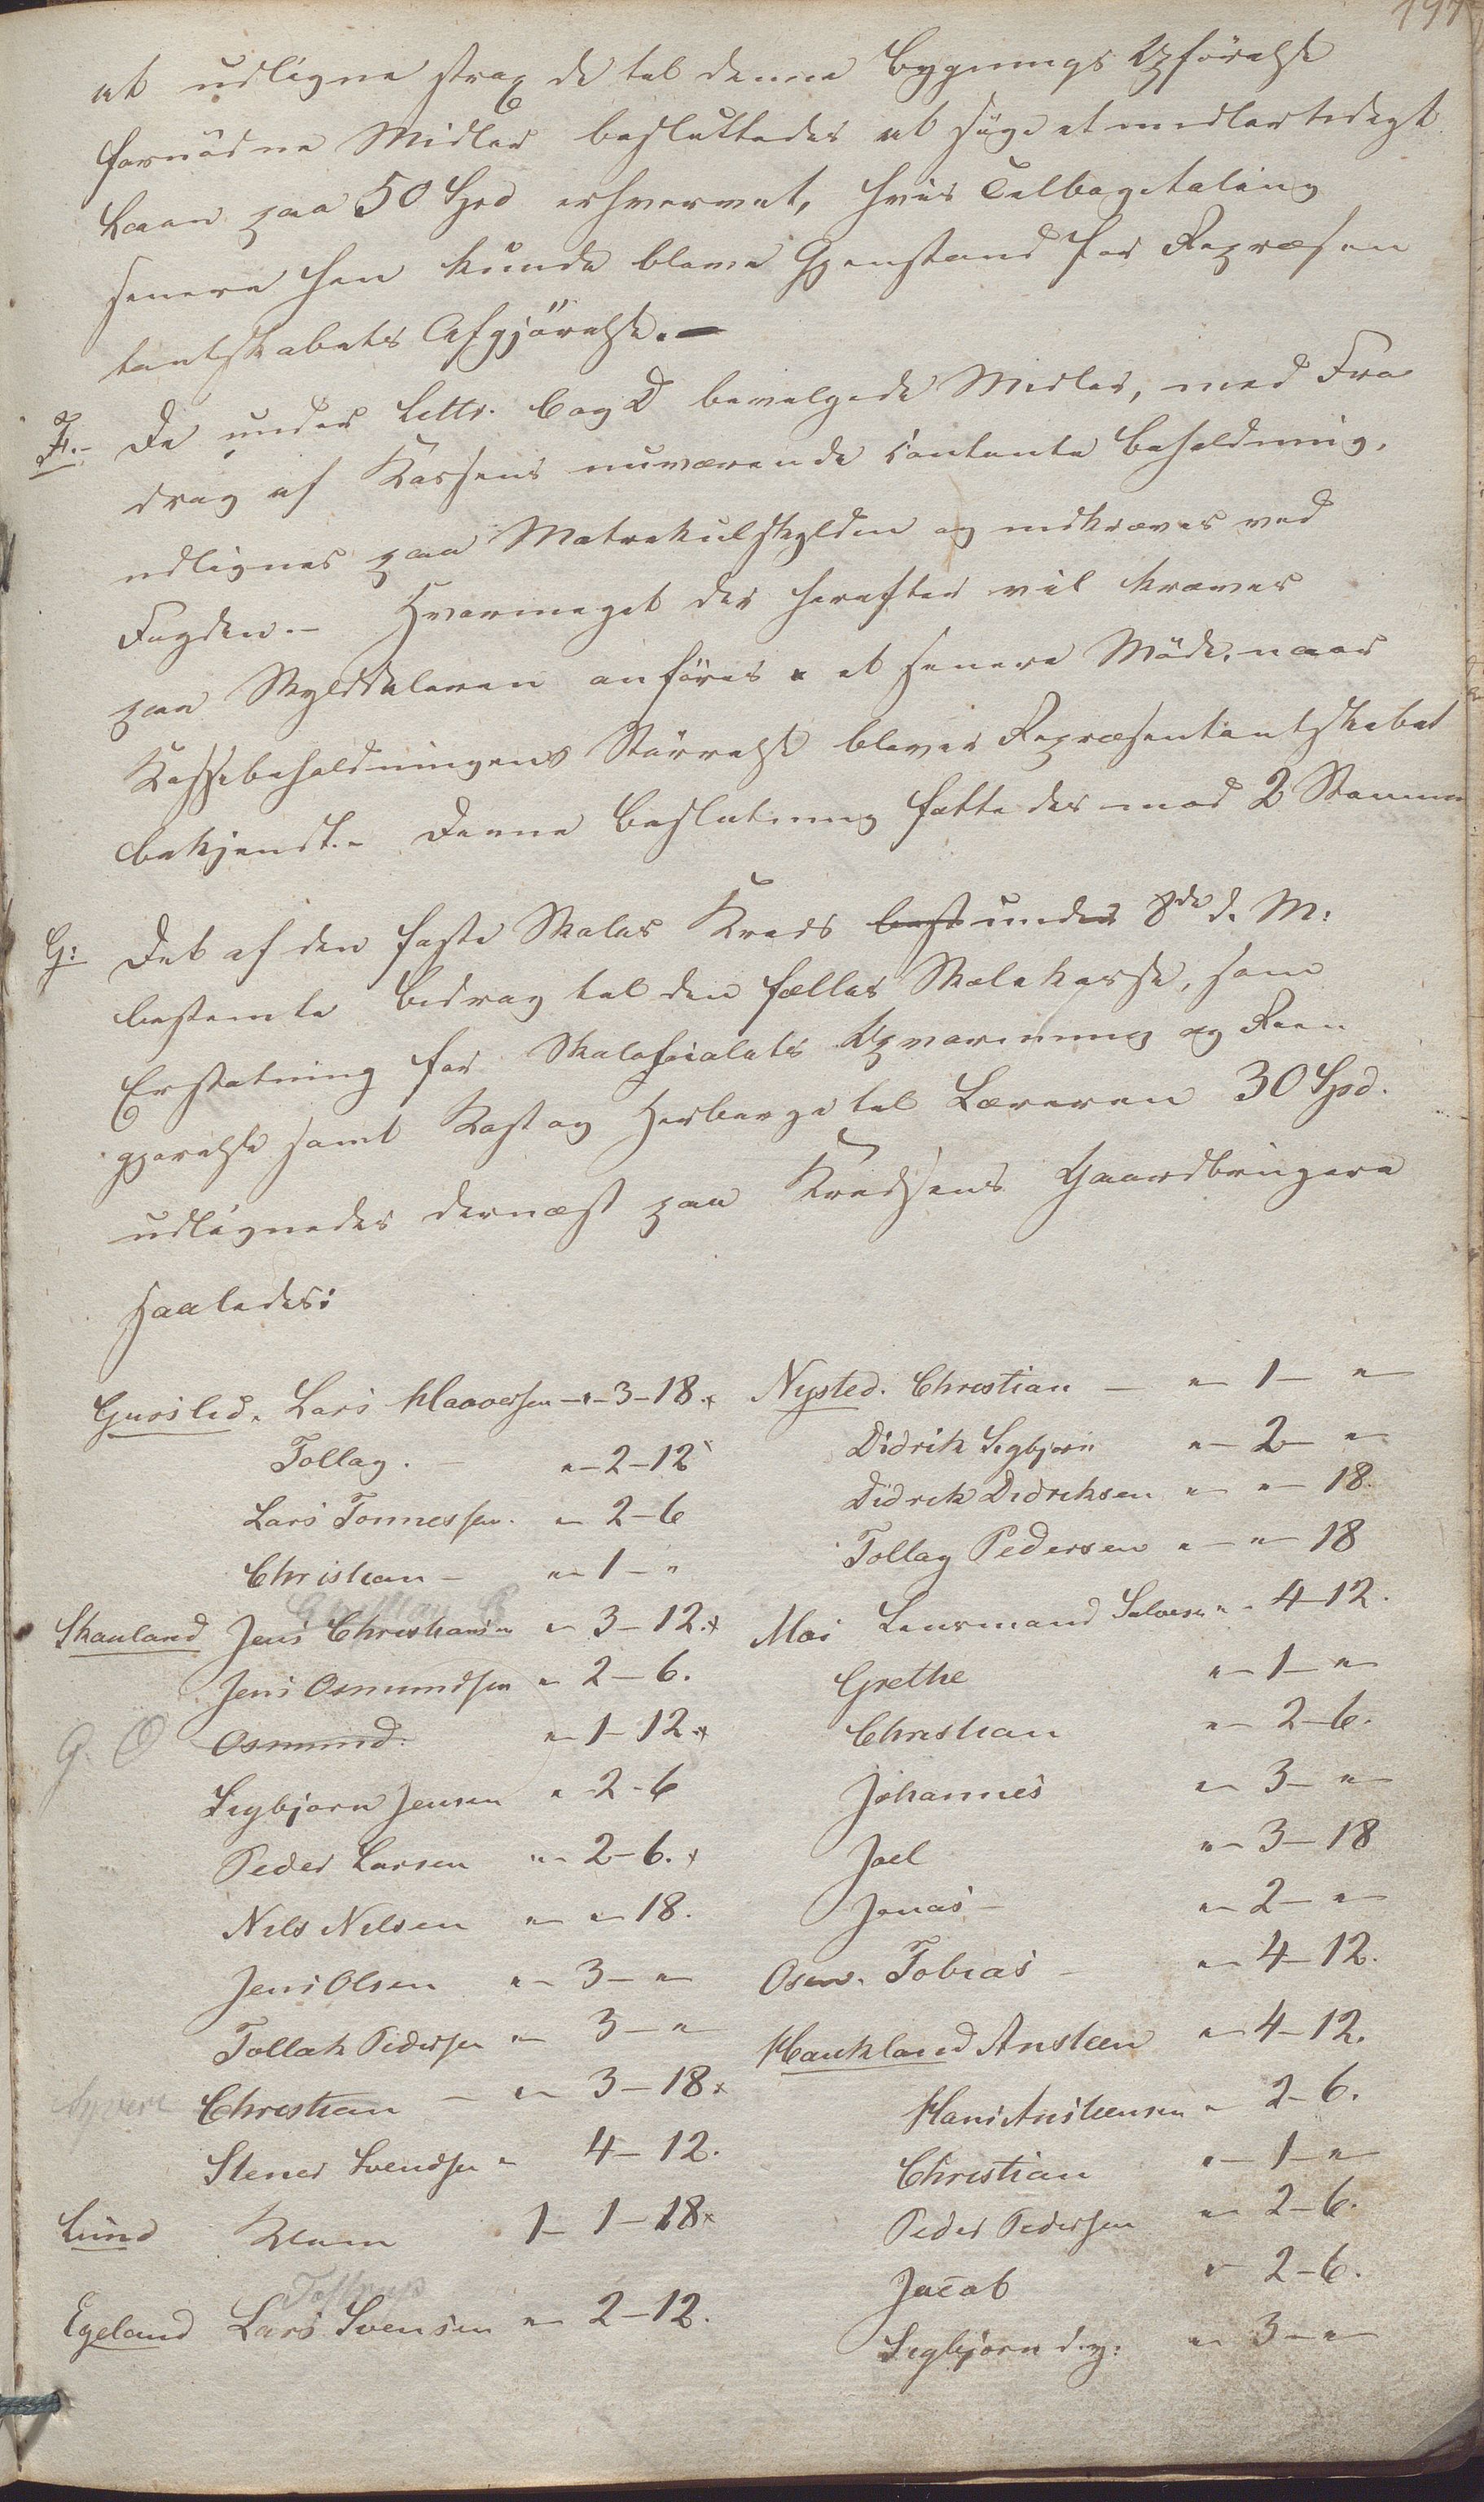 197
at udligne strax de til denne Bygnings Opförelse
fornödne Midler besluttedes at söge et midlertidigt
Laan paa 50 Spd erhvervet, hvis Tilbagetaling
senere hen kunde blive Gjenstand for Repræsen
tantskabets Afgjörelse. —
F.- De under Littr. C og D bevilgede Midler, med Fra
drag af Kassens nuværende contante Beholdning,
udlignes paa Matrikulskylden og indkræves ved
Fogden. - Hvormeget der herefter vil kræves
paa Skylddaleren anföres i et senere Möde, naar
Kassebeholdningens Störrelse bliver Repræsentantskabet
bekjendt. - Denne Beslutning fattedes mod 2 Stemmer
G: Det af den faste Skoles Kreds under 8de d. M:
bestemte Bidrag til den fælles Skolekasse, som
Erstatning for Skolelocalets Opvarmning og Reen
gjørelse samt Kost og Herberge til Læreren 30 Spd.
udlignedes dernæst paa Kredsens Gaardbrugere
saaledes:
Gursled. Lars Klaavesen - " - 3 - 18.
Tollag. - " - 2 - 12
Lars Tonnessen. " - 2 - 6
Christian - " - 1 - "
Skauland Jens Christiansen " - 3 - 12.
Jens Osmundsen " - 2 - 6.
G. O Osmund. " - 1 - 12.
Sigbjorn Jensen " - 2 - 6
Peder Larsen " - 2 - 6.
Nils Nilsen " - " - 18.
Jens Olsen " - 3 - "
Tollak Pedersen " - 3 - "
Christian - " - 3 - 18
Stener Svendsen " 4 - 12.
Lund 1 - 1 - 18
Egeland Lars Svensen " - 2 - 12.
Nysted. Christian - " - 1 - "
Didrik Sigbjørn " - 2 - "
Didrik Didriksen " - " - 18.
Tollag Pedersen " - " - 18
Moi Lensmand Salvesen " - 4 - 12.
Grethe " - 1 - "
Christian " - 2 - 6.
Johannes " - 3 - "
Joel " - 3 - 18
Jonas - " - 2 - "
Osen. Tobias - " - 4 - 12.
Haukland Ansteen " - 4 - 12.
Hans Ansteensen " - 2 - 6.
Christian " - 1 - "
Peder Pedersen " - 2 - 6.
Jacob " - 2 - 6.
Sigbjørn d. y: " - 3 - "